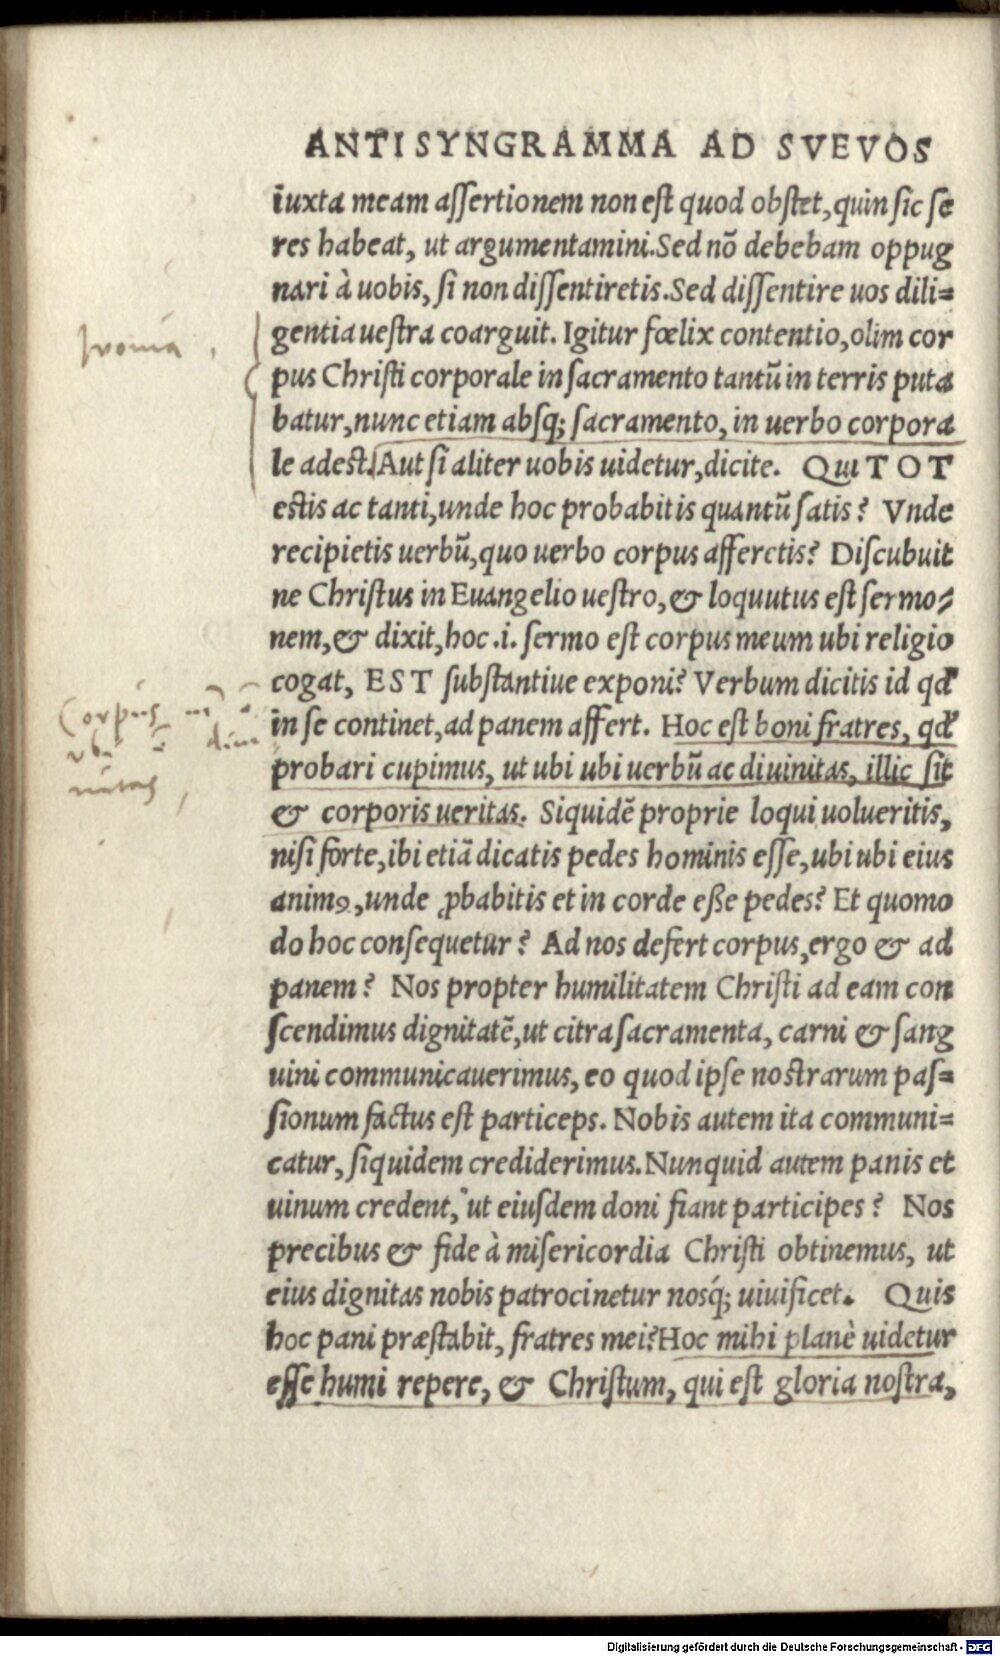 ANTISYNGRAMMA AD SVEVOS
iuxta meam assertionem non est quod obstet, quin sic se
res habeat, ut argumentamini. Sed nõ debebam oppug
nari à uobis, si non dissentiretis. Sed dissentire uos dili=
gentia uestra coarguit. Igitur fœlix contentio, olim cor
pus Christi corporale in sacramento tantũ in terris puta
batur, nunc etiam absq; sacramento, in uerbo corpora
le adest. Aut si aliter uobis uidetur, dicite. Qui TOT
estis ac tanti, unde hoc probabitis quantũ satis? Vnde
recipietis uerbũ, quo uerbo corpus afferetis? Discubuit
ne Christus in Euangelio uestro, & loquutus est sermo=
nem, & dixit, hoc .i. sermo est corpus meum ubi religio
cogat, EST substantiue exponi? Verbum dicitis id qd'
in se continet, ad panem affert. Hoc est boni fratres, qd'
probari cupimus, ut ubi ubi uerbũ ac diuinitas, illic sit
& corporis ueritas. Siquidẽ proprie loqui uolueritis,
nisi forte, ibi etiã dicatis pedes hominis esse, ubi ubi eius
animꝰ, unde ꝓbabitis et in corde eße pedes? Et quomo
do hoc consequetur? Ad nos defert corpus, ergo & ad
panem? Nos propter humilitatem Christi ad eam con
scendimus dignitatẽ, ut citra sacramenta, carni & sang
uini communicauerimus, eo quod ipse nostrarum pas=
sionum factus est particeps. Nobis autem ita communi=
catur, siquidem crediderimus. Nunquid autem panis et
uinum credent, ut eiusdem doni fiant participes? Nos
precibus & fide à misericordia Christi obtinemus, ut
eius dignitas nobis patrocinetur nosq́; uiuificet. Quis
hoc pani præstabit, fratres mei? Hoc mihi planè uidetur
esse humi repere, & Christum, qui est gloria nostra,
Ironia
Corpus
ubi
Digitalisierung gefördert durch die Deutsche Forschungsgemeinschaft - DFG